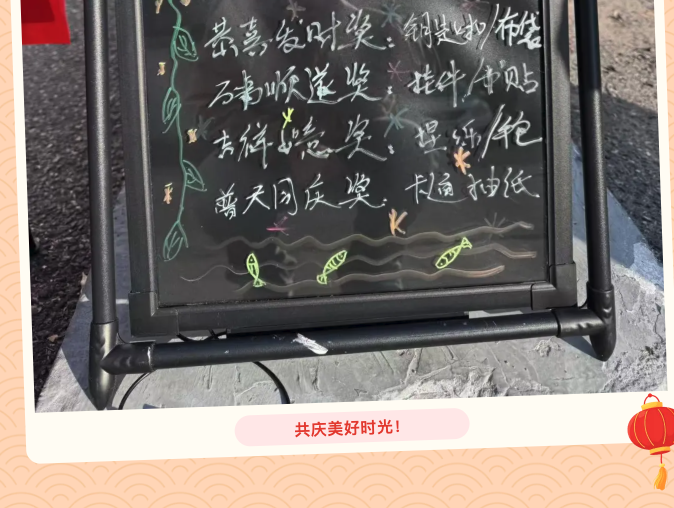 恭喜发财奖：钥匙扣/布袋
万事顺遂奖：挂件/冰箱贴
吉祥如意奖：湿纸/包
普天同庆奖：卡通抽纸
共庆美好时光！